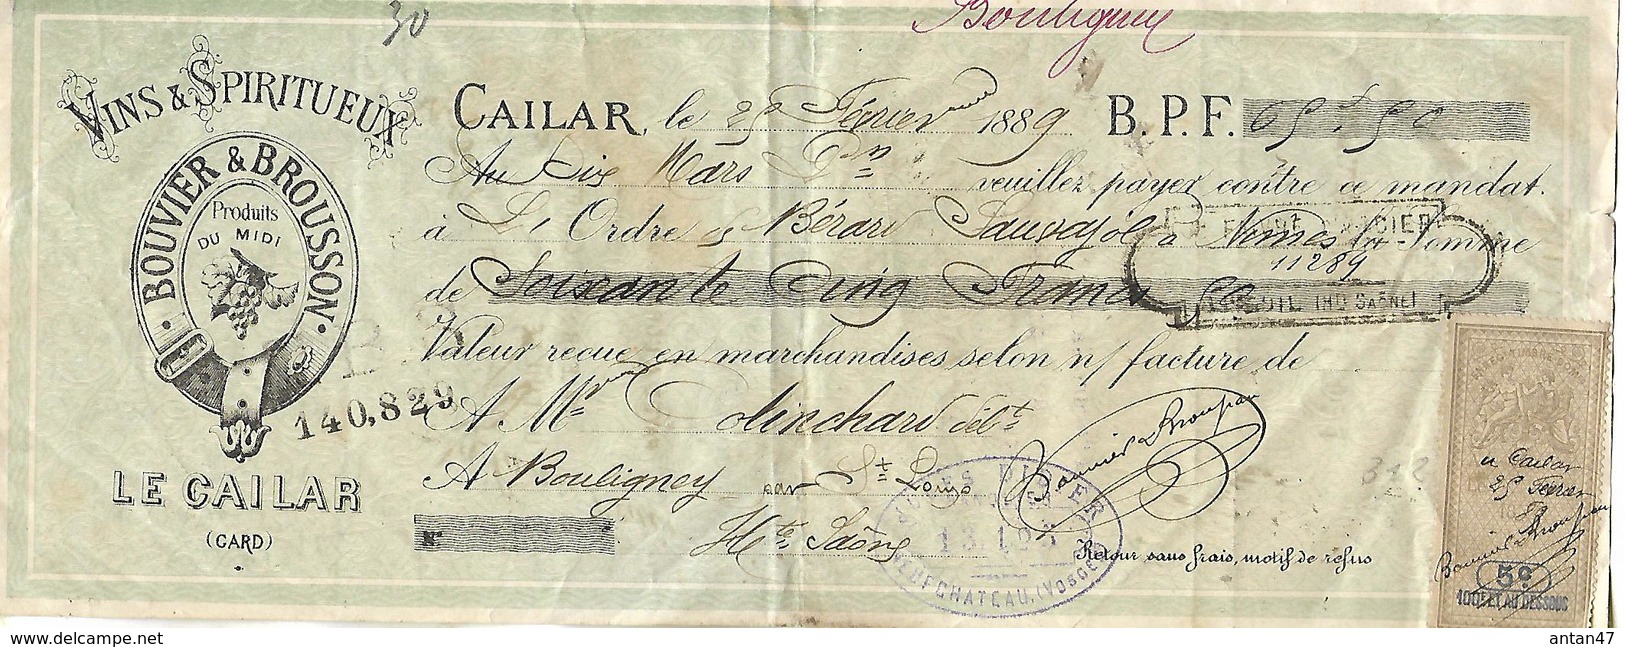 30
Bouligney
VINS & SPIRITUEUX
BOUVIER & BROUSSON
Produits
DU MIDI
LE CAILAR
(GARD)
140,829
CAILAR, le 25 Février 1889 B.P.F. 65f.50
Au Dix Mars Pn veuillez payer contre ce mandat.
à L' Ordre Bérard Sauvajol à Nimes la Somme
de Soixante Cinq Francs 50
11289
(HTE SAÔNE)
Valeur reçue en marchandises selon n/ facture de
A Mr Colinchard débt
A Bouligney par St Loup
Hte Saône
Bouvier & Brousson
JULES
NEUFCHATEAU, (VOSGES)
Retour sans frais, motif de refus
312
Cailar
25 Février
Bouvier & Brousson
5c
100F ET AU DESSOUS
antan47